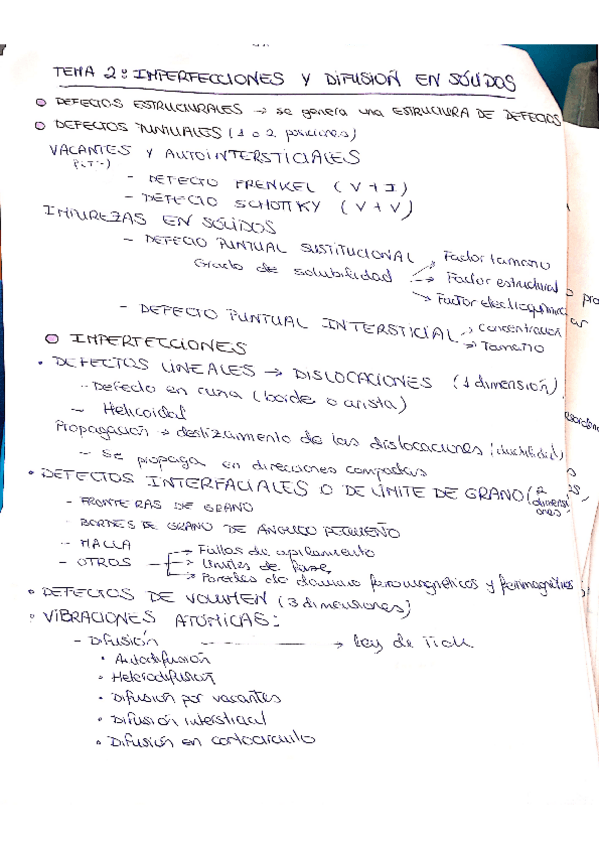 TEMA 2: IMPERFECCIONES Y DIFUSIÓN EN SÓLIDOS
DEFECTOS ESTRUCTURALES → se genera una ESTRUCTURA DE DEFECTOS
DEFECTOS PUNTUALES (1 o 2 posiciones)
VACANTES Y AUTOINTERSTICIALES
- DEFECTO FRENKEL (V + I)
- DEFECTO SCHOTTKY (V + V)
IMPUREZAS EN SÓLIDOS
- DEFECTO PUNTUAL SUSTITUCIONAL → Factor tamaño
Grado de solubilidad → Factor estructural
→ Factor electroquímico
- DEFECTO PUNTUAL INTERSTICIAL → Concentración
→ Tamaño
IMPERFECCIONES
• DEFECTOS LINEALES → DISLOCACIONES (1 dimensión)
- Defecto en cuña (borde o arista)
- Helicoidal
Propagación → deslizamiento de las dislocaciones (ductilidad)
- Se propaga en direcciones compactas
• DEFECTOS INTERFACIALES O DE LÍMITE DE GRANO (2 dimensiones)
- FRONTERAS DE GRANO
- BORDES DE GRANO DE ÁNGULO PEQUEÑO
- MACLA
- OTROS → Fallos de apilamiento
→ Límites de fase
→ Paredes de dominio ferromagnéticos y ferrimagnéticos
• DEFECTOS DE VOLUMEN (3 dimensiones)
• VIBRACIONES ATÓMICAS:
- Difusión → Ley de Fick
• Autodifusión
• Heterodifusión
• Difusión por vacantes
• Difusión intersticial
• Difusión en cortocircuito